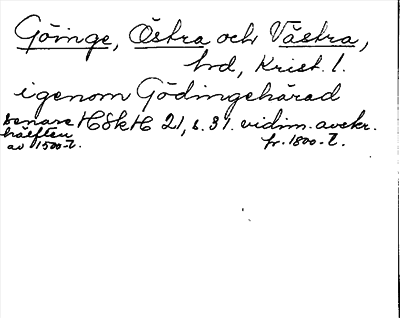 Göinge, Östra och Västra,
hrd, Krist. l.
igenom Gödingehärad
senare hälften av 1500-t. HSkH 21, s. 31. vidim. avskr. fr. 1800-t.